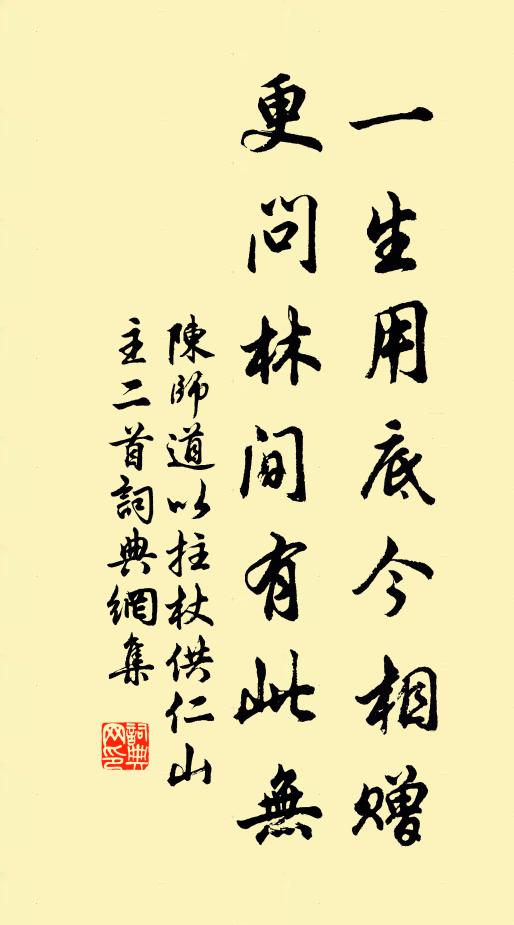 一生用底今相贈
更问林间有此無
陳師道以拄杖供仁山
主二首詞典網集
詞典
网印